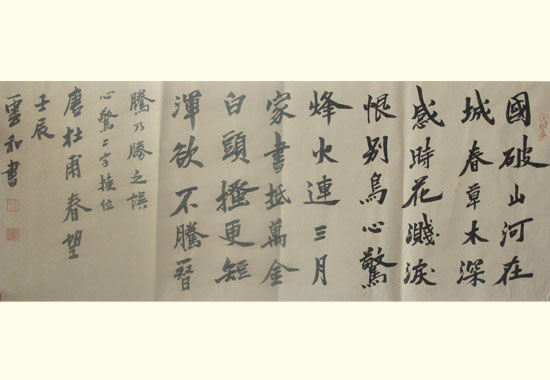 國破山河在
城春草木深
感時花濺淚
恨别鳥心驚
烽火連三月
家書抵萬金
白頭搔更短
渾欲不騰簪
騰乃勝之誤
心驚二字換位
唐杜甫春望
壬辰
雲和書